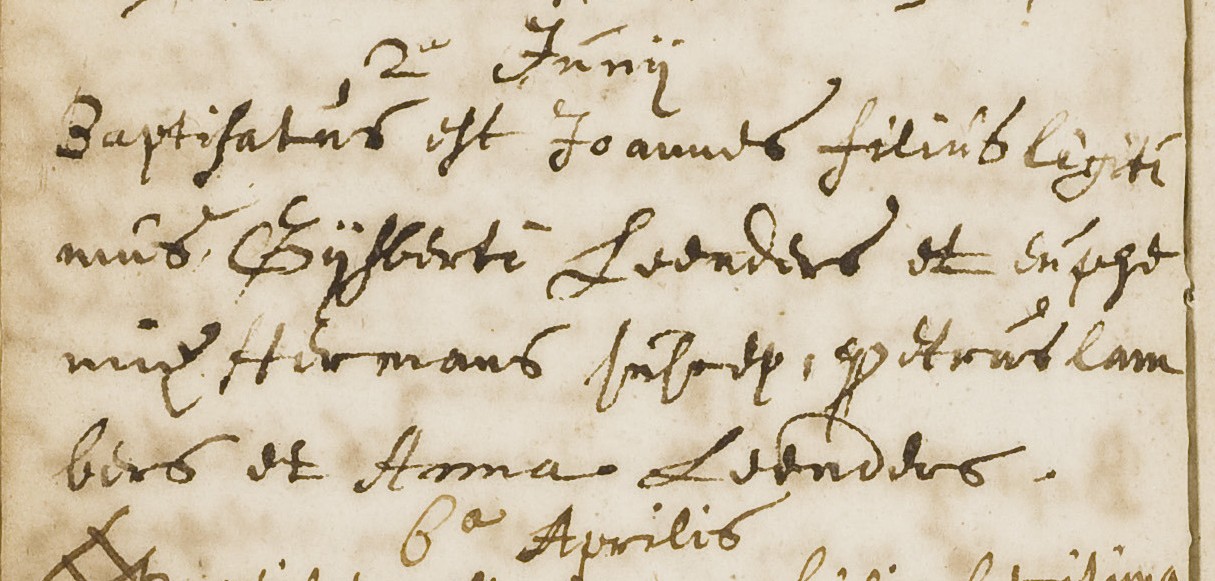 2a Junij
Baptisatus est Joannes filius legiti
mus Gijsberti Leenders et euphe
miæ Hermans suscep, petrus lam
bers et Anna Leenders.
6a Aprilis